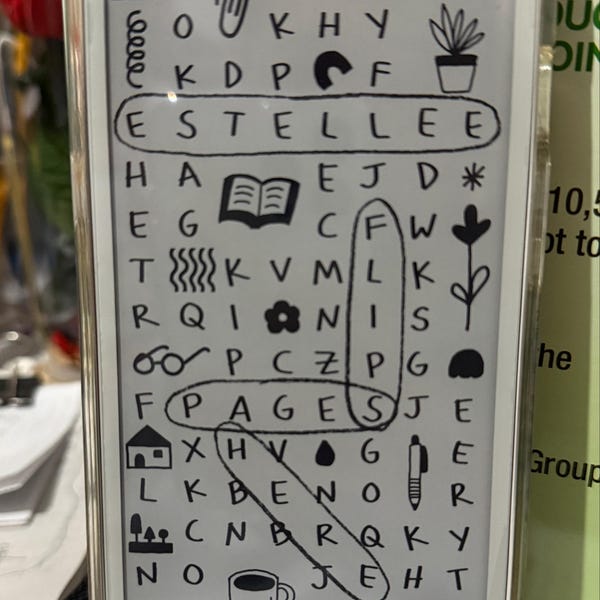 O K H Y
K D P F
E S T E L L E E
H A E J D
E G C F W
T K V M L K
R Q I N I S
P C Z P G
F P A G E S J E
X H V G E
L K B E N O R
C N B R Q K Y
N O J E H T
OIN
10,5
ot to
he
Group